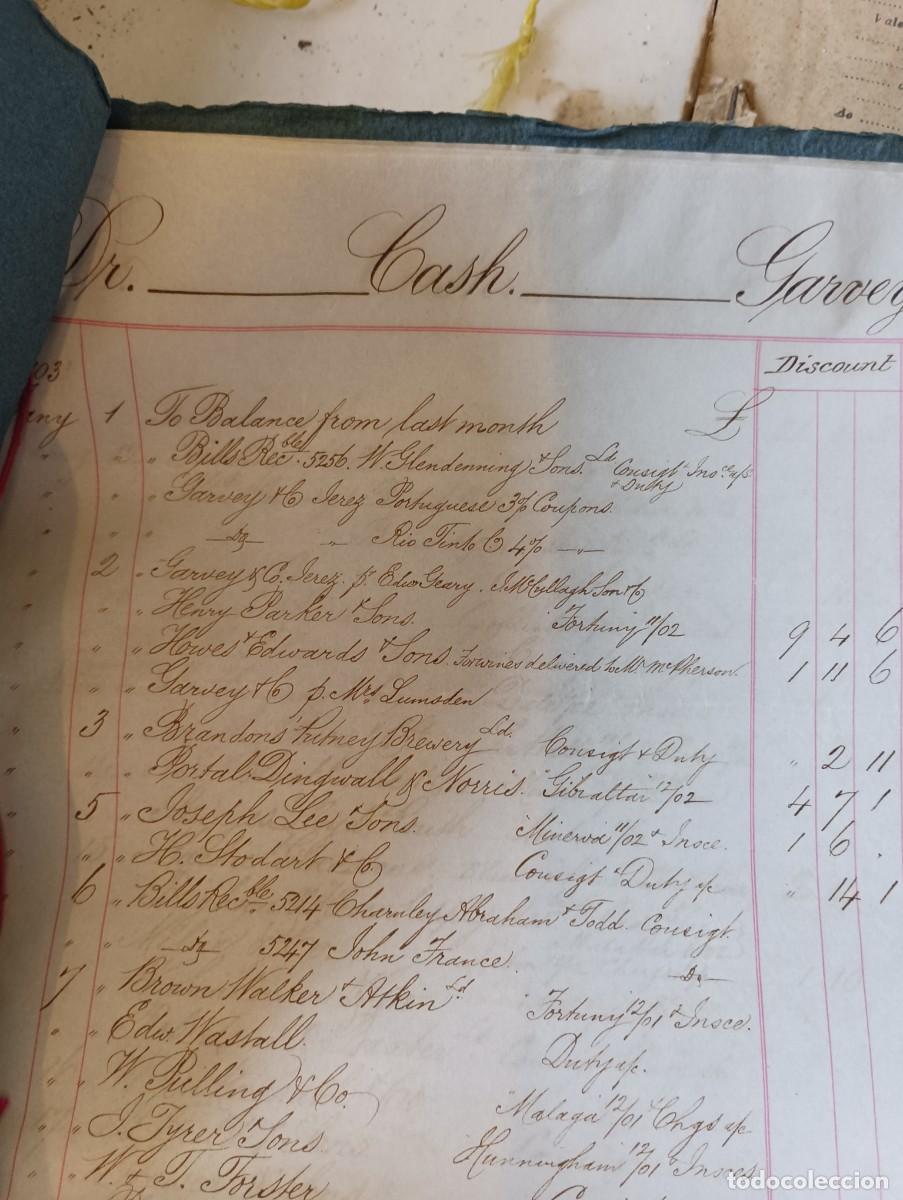 Vale
do
Dr. Cash. Garvey
03 Discount
ny 1 To Balance from last month £
" " " Bills Recble. 5256. W. Glendenning & Sons. Ld. Consigt Insce a/c & Duty
" " " Garvey & Co Jerez Portuguese 3% Coupons.
" " " Do " Rio Tinto Co 4% "
" 2 " Garvey & Co. Jerez. p. Edw Geary. J. McCullagh Son & Co
" " " Henry Parker & Sons. "Fortuny" 11/02 9 4 6
" " " Howes & Edwards & Sons. For wines delivered to Mr. McPherson. 1 11 6
" " " Garvey & Co p. Mrs Lumsden
" 3 " Brandons' Putney Brewery Ld. Consigt & Duty " 2 11
" " " Portal, Dingwall & Norris. "Gibraltar" 12/02 4 7 1
" 5 " Joseph Lee & Sons. "Minerva" 11/02 & Insce. 1 6 .
" " " H. Stodart & Co Consigt & Duty a/c " 14 1
" 6 " Bills Recble 5214 Charnley Abraham & Todd. Consigt.
" " " Do 5247 John France. Do
" 7 " Brown Walker & Atkin Ld. "Fortuny" 12/01 & Insce.
" " " Edw. Wastall. Duty a/c.
" " " W. Pulling & Co. "Malaga" 12/01 & Chgs a/c
" " " J. Tyrer & Sons. "Hunningham" 12/01 & Insces
" " " W. & T. Forster
todocoleccion